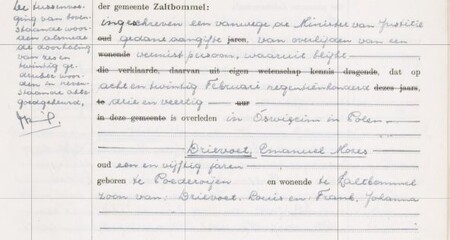 De tussenvoe-
ging van boven-
staande woor-
den alsmede
de doorhaling
van zes en
twintig ge-
drukte woor-
den in neven-
staande akte
goedgekeurd,
der gemeente Zaltbommel:
ingeschreven een vanwege de Minister van Justitie
oud gedane aangifte jaren, van overlijden van een
wonende vermist persoon, waaruit blijkt
die verklaarde, daarvan uit eigen wetenschap kennis dragende, dat op
acht en twintig Februari negentienhonderd dezes jaars,
te drie en veertig uur
in deze gemeente is overleden in Oswiecim in Polen
Drievoet, Emanuel Mozes
oud een en vijftig jaren
geboren te Poederoijen en wonende te Zaltbommel
zoon van: Drievoet, Louis en Frank, Johanna